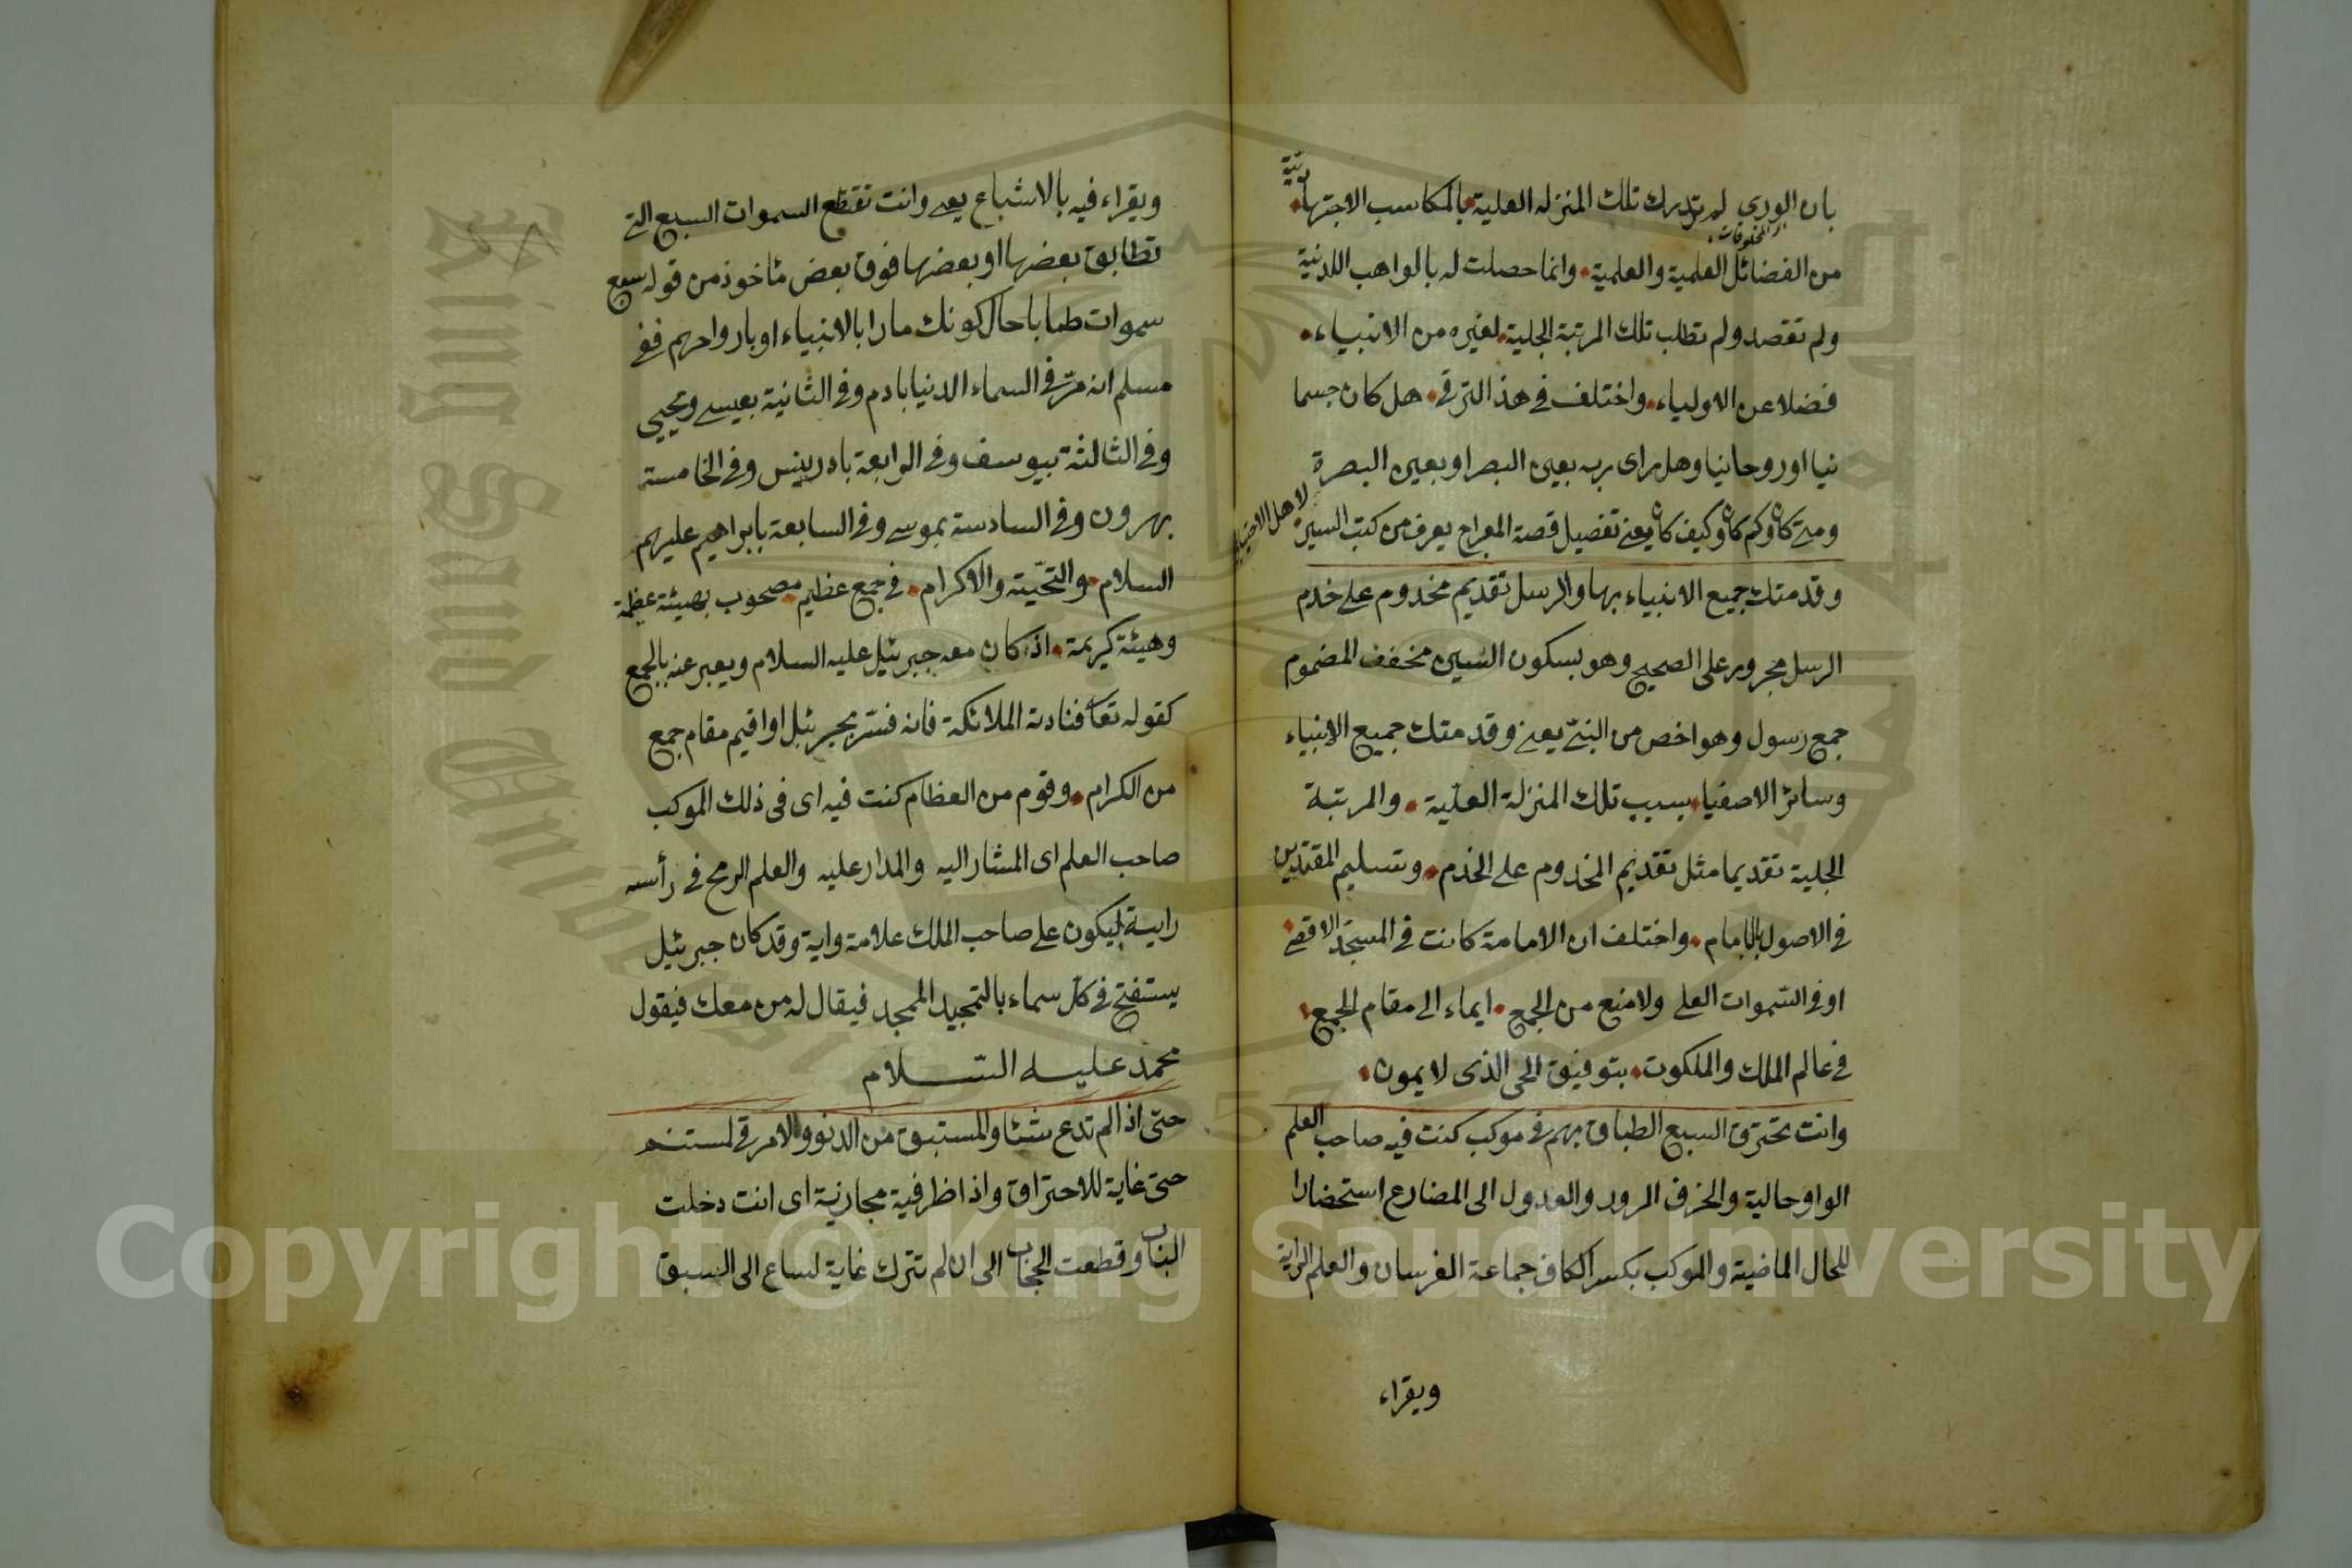 بان الورى لم تدرك تلك المنزله العلية بالمكاسب الاجتهادية
المخلوقات
من الفضائل العلمية والعلمية وانما حصلت له بالمواهب اللدنية
ولم تقصد ولم تطلب تلك المرتبة الجلية لغيره من الانبياء
فضلا عن الاولياء واختلف في هذ الترقي هل كان جسما
نيا اوروحانيا وهل راى ربه بعين البصر او بعين البصرة
ومتى كان وكم كان وكيف كان يعني تفصيل قصة المعراج يعرف من كتب السير
وقدمتك جميع الانبياء بها والرسل تقديم مخدوم على خدم
الرسل مجرور على الصحيح وهو بسكون السين مخفف المضموم
جمع رسول وهو اخص من النبي يعني وقدمتك جميع الانبياء
وسائر الاصفياء بسبب تلك المنزلة العلية والمرتبة
الجلية تقديما مثل تقديم المخدوم على الخدم وتسليم المقتدين
في الاصول بالامام واختلف ان الامامة كانت في المسجد الاقصى
او في السموات العلى ولا منع من الجمع ايماء الى مقام الجمع
في عالم الملك والملكوت بتوفيق الحى الذى لا يموت
وانت تخترق السبع الطباق بهم في موكب كنت فيه صاحب العلم
الواو حالية والخرق المرور والعدول الى المضارع استحضارا
للحال الماضية والموكب بكسر الكاف جماعة الفرسان والعلم الراية
ويقراء
ويقراء فيه بالاشباع يعني وانت تقتطع السموات السبع التي
تطابق بعضها او بعضها فوق بعض مأخوذ من قوله سبع
سموات طباقا حال كونك مارا بالانبياء او بارواحهم ففي
مسلم انه مرّ في السماء الدنيا بادم وفي الثانية بعيسى ويحيى
وفي الثالثة بيوسف وفي الرابعة بادريس وفي الخامسة
بهرون وفي السادسة بموسى وفي السابعة بابراهيم عليهم
السلام والتحيّة والاكرام في جمع عظيم مصحوب بهيئة عظيمة
وهيئة كريمة اذ كان معه جبرئيل عليه السلام ويعبر عنه بالجمع
كقوله تعا فنادته الملائكة فانه فسّر بجبرئيل او اقيم مقام جمع
من الكرام وقوم من العظام كنت فيه اى فى ذلك الموكب
صاحب العلم اى المشار اليه والمدار عليه والعلم الرمح في رأسه
راية ليكون على صاحب الملك علامة واية وقد كان جبرئيل
يستفتح في كل سماء بالتمجيد الممجد فيقال له من معك فيقول
محمد عليه السلام
حتى اذا لم تدع شئا والمستبق من الدنو والامرقى لمستنم
حتى غاية للاختراق واذا ظرفية مجازية اى انت دخلت
الباب وقطعت الحجاب الى ان لم تترك غاية لساع الى السبق